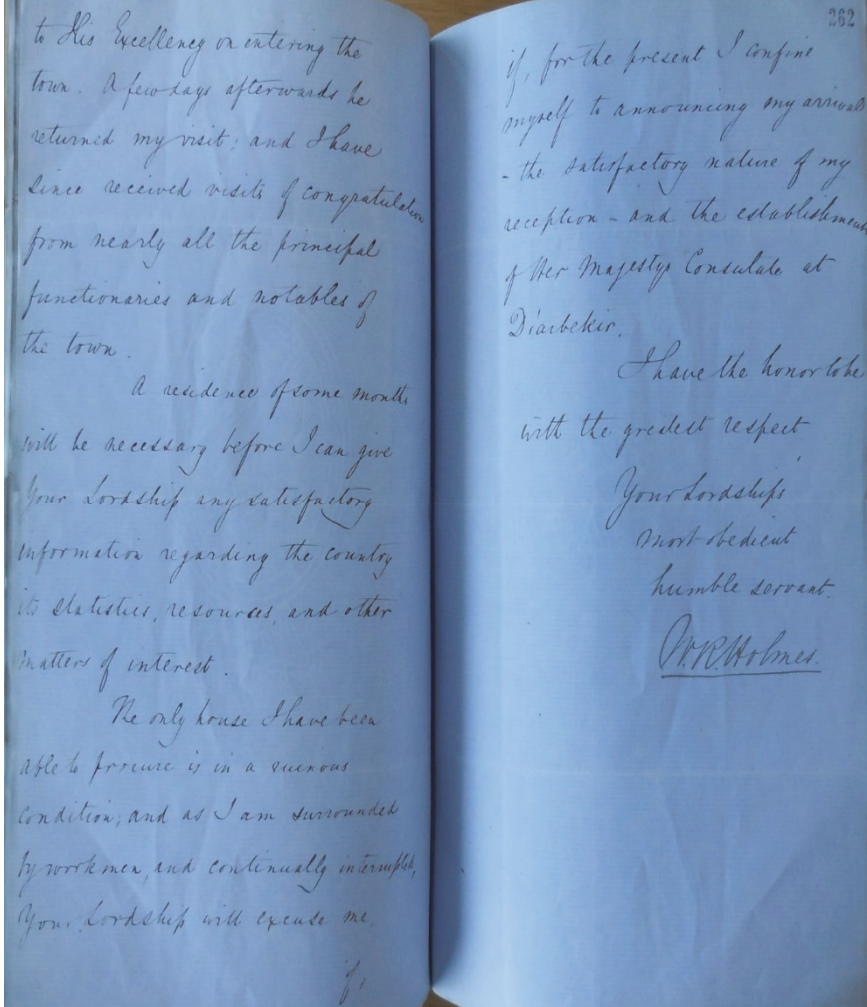 to His Excellency on entering the
town. A few days afterwards he
returned my visit; and I have
since received visits of congratulation
from nearly all the principal
functionaries and notables of
the town.
A residence of some months
will be necessary before I can give
Your Lordship any satisfactory
information regarding the country
its statistics, resources, and other
matters of interest.
The only house I have been
able to procure is in a ruinous
condition; and as I am surrounded
by workmen, and continually interrupted,
Your Lordship will excuse me
if,
262
if, for the present I confine
myself to announcing my arrival
- the satisfactory nature of my
reception - and the establishment
of Her Majestys Consulate at
Diarbekir.
I have the honor to be
with the greatest respect
Your Lordships
most obedient
humble servant.
W.R. Holmes.